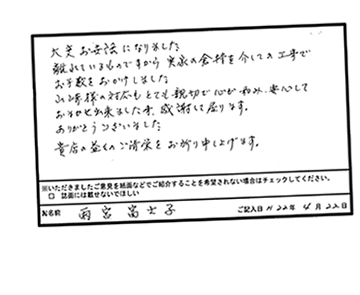 大変お世話になりました
離れているものですから実家の金持を介しての工事で
お手数をおかけしました
山崎様の対応もとても親切で心が和み、安心して
おまかせ出来ました事、感謝して居ります。
ありがとうございました
貴店の益々のご清栄をお祈り申し上げます。
※いただきましたご意見を紙面などでご紹介することを希望されない場合はチェックしてください。
□ 誌面には載せないでほしい
お名前 雨宮富士子 ご記入日 H22年4月22日